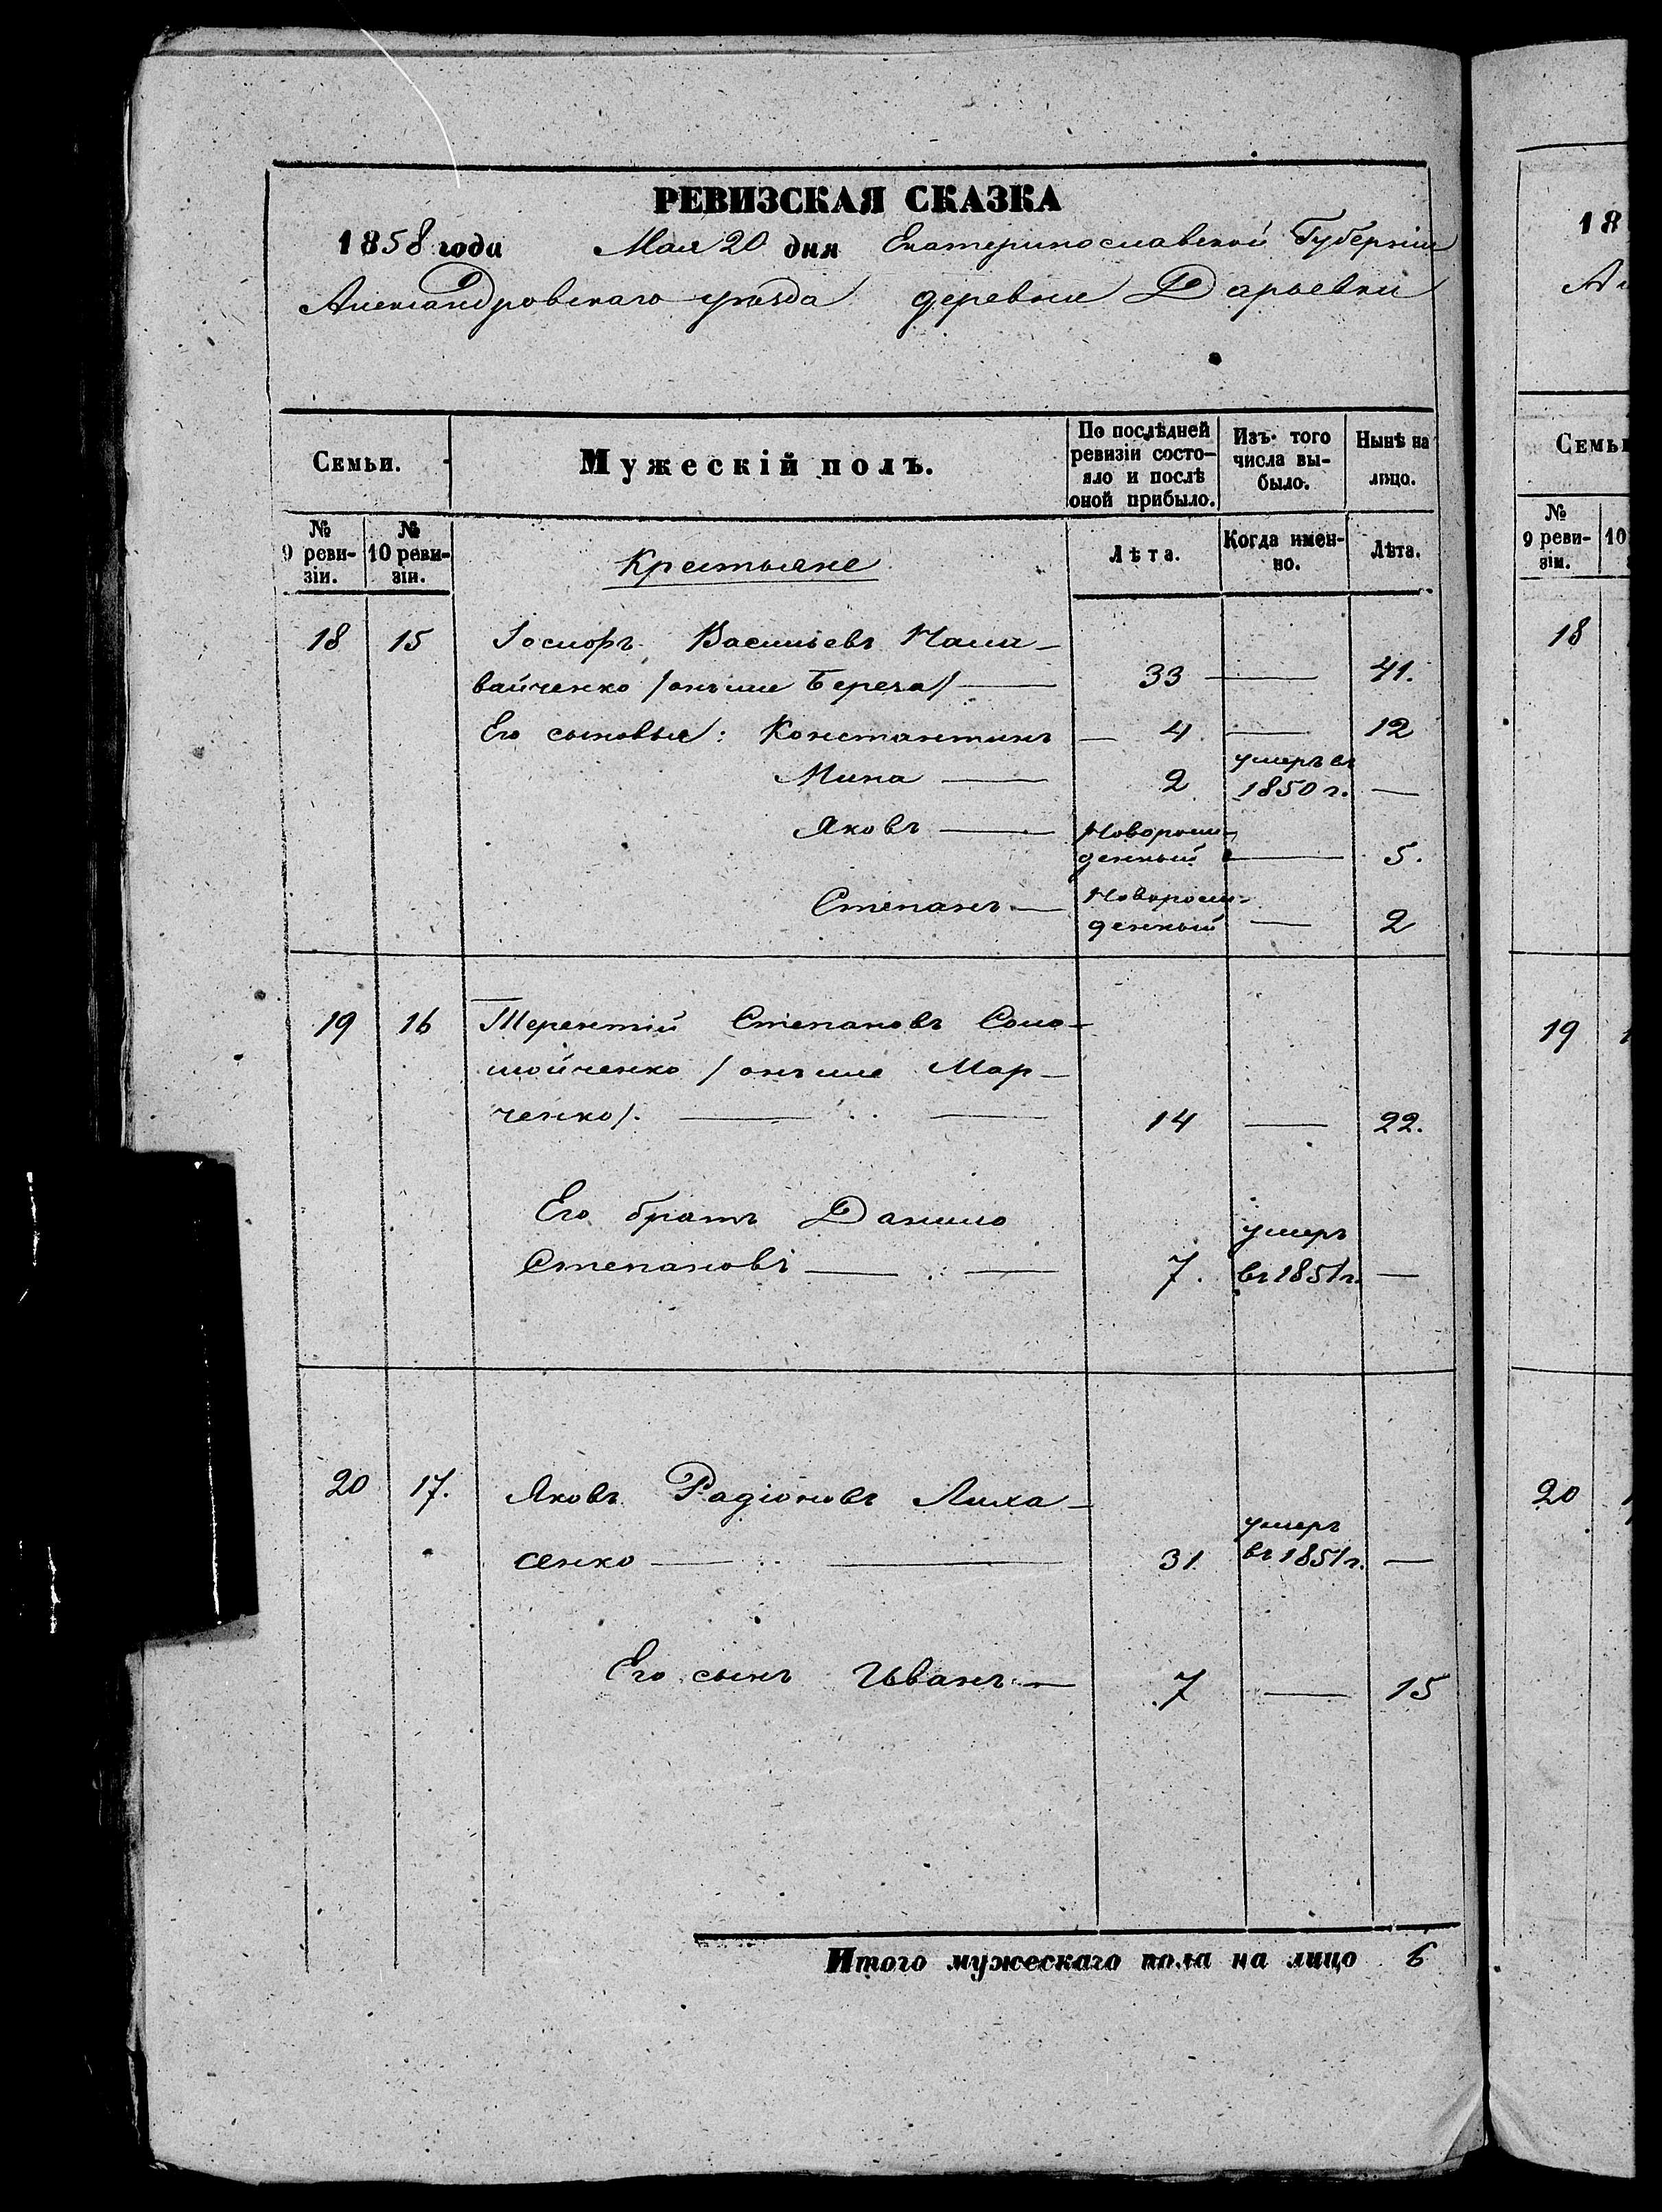 РЕВИЗСКАЯ СКАЗКА
1858 года Мая 20 дня Екатеринославской Губерніи
Александровскаго уѣзда деревни Дарьевки
Семьи.
Мужескій полъ.
По послѣдней ревизіи состояло и послѣ оной прибыло.
Изъ того числа выбыло.
Нынѣ на лицо.
№ 9 ревизіи.
№ 10 ревизіи.
Крестьяне
Лѣта.
Когда именно.
Лѣта.
18 15 Іосифъ Васильевъ
вайченко /онъ же Береза/ — 33 — 41.
Его сыновья: Константинъ — 4 — 12
Мина — 2 умеръ въ 1850 г. —
Яковъ — Новорожденный — 5.
Степанъ — Новорожденный — 2
19 16 Терентій Степановъ Соло-
мойченко /онъ же Мар-
ченко/. — — 14 — 22.
Его братъ Данило
Степановъ — — 7. умеръ въ 1851 г. —
20 17. Яковъ Радіоновъ Лиха-
сенко — — 31 умеръ въ 1851 г. —
Его сынъ Иванъ — 7 — 15
Итого мужескаго пола на лицо 6
18
Семьи
№ 9 ревизіи.
10
18
19
20